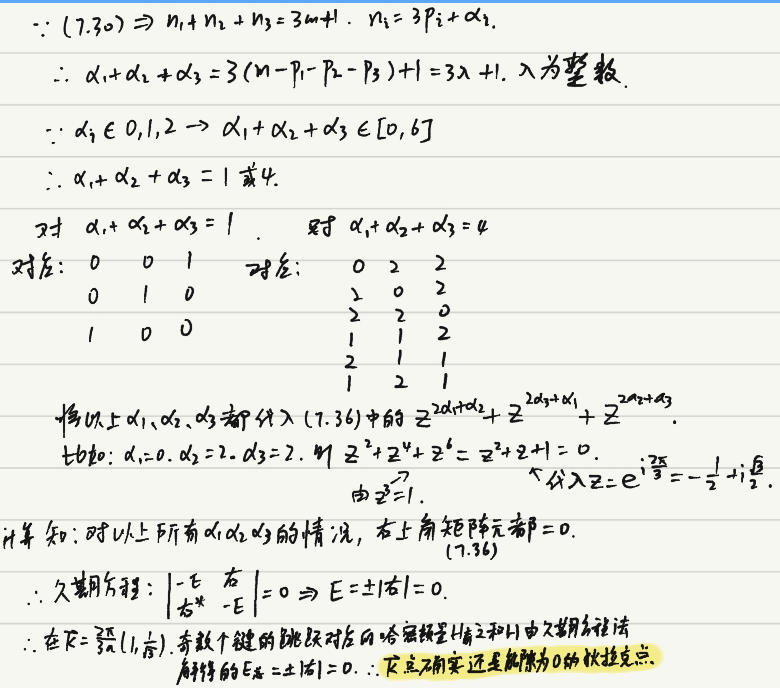 ∵ (7.30) ⇒ n₁+n₂+n₃=3m+1. nᵢ=3pᵢ+αᵢ.
∴ α₁+α₂+α₃=3(m-p₁-p₂-p₃)+1=3λ+1. λ为整数.
∵ αᵢ∈0,1,2 → α₁+α₂+α₃∈[0,6]
∴ α₁+α₂+α₃=1 或4.
对 α₁+α₂+α₃=1. 对 α₁+α₂+α₃=4
对应: 0 0 1 对应: 0 2 2
0 1 0 2 0 2
1 0 0 2 2 0
1 1 2
2 1 1
1 2 1
将以上α₁、α₂、α₃都代入(7.36)中的 z^{2α₁+α₂}+z^{2α₃+α₁}+z^{2α₂+α₃}.
比如: α₁=0. α₂=2. α₃=2. 则 z²+z⁴+z⁶=z²+z+1=0.
由z³=1. ↖代入z=e^{i2π/3}=-1/2+i√3/2.
计算知:对以上所有α₁α₂α₃的情况,右上角矩阵元都=0.
(7.36)
∴ 久期方程: |-E 右; 右* -E|=0 ⇒ E=±|右|=0.
∴ 在K=2π/3a(1,1/√3).奇数个键的跳跃对应的哈密顿量H 之和H由久期方程法
解得的E=±|右|=0. ∴ K点确实还是能隙为0的狄拉克点.